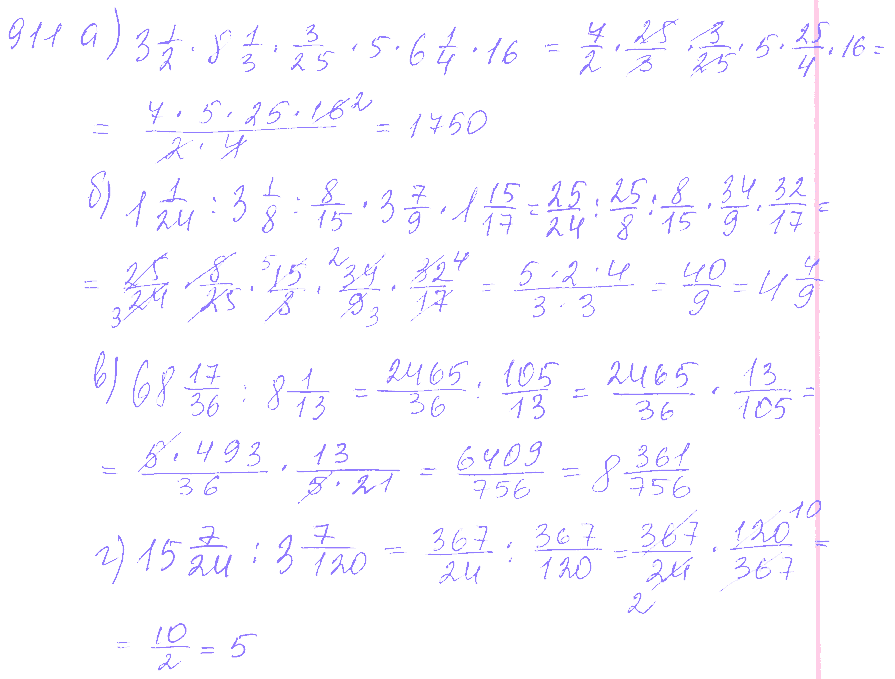 911 а) 3 1/2 · 8 1/3 · 3/25 · 5 · 6 1/4 · 16 = 7/2 · 25/3 · 3/25 · 5 · 25/4 · 16 =
= (7 · 5 · 25 · 16 2)/(2 · 4) = 1750
б) 1 1/24 : 3 1/8 : 8/15 · 3 7/9 · 1 15/17 = 25/24 : 25/8 : 8/15 · 34/9 · 32/17 =
= 25/24 3 · 8/25 · 5 15/8 · 2 34/9 3 · 32 4/17 = (5 · 2 · 4)/(3 · 3) = 40/9 = 4 4/9
в) 68 17/36 : 8 1/13 = 2465/36 : 105/13 = 2465/36 · 13/105 =
= (5 · 493)/36 · 13/(5 · 21) = 6409/756 = 8 361/756
г) 15 7/24 : 3 7/120 = 367/24 : 367/120 = 367/24 2 · 120 10/367 =
= 10/2 = 5